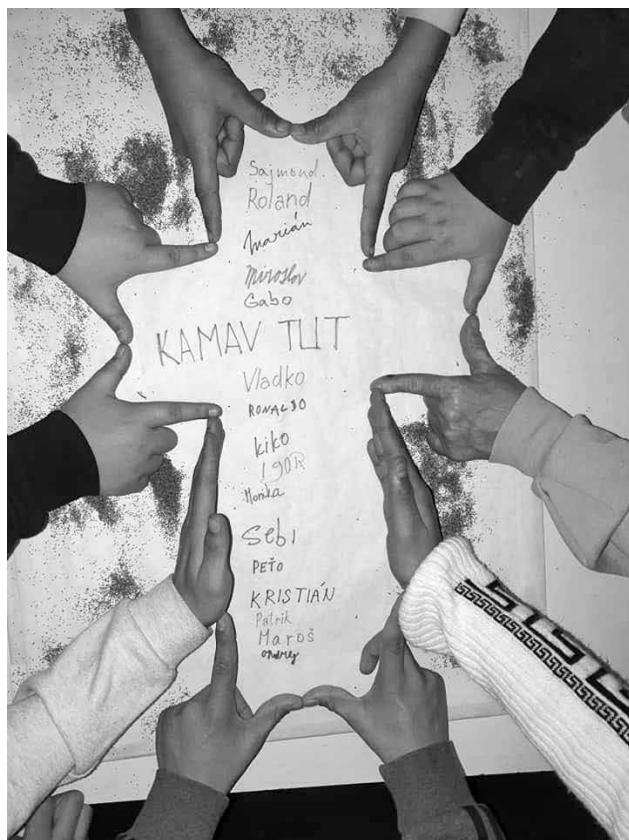 Sajmond
Roland
Marián
Miroslav
Gabo
KAMAV TUT
Vladko
RONALDO
kiko
IGOR
Monika
Sebi
PEŤO
KRISTIÁN
Patrik
Maroš
Ondrej